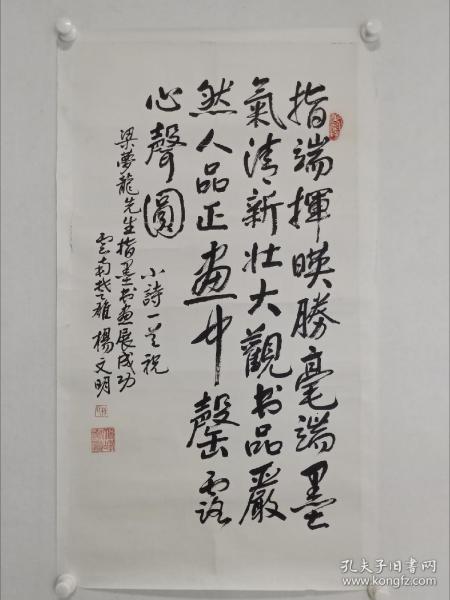 指端揮暎勝毫端墨
氣清新壯大觀书品嚴
然人品正畫中罄露
心聲圓
小詩一首祝
梁夢龍先生指墨书畫展成功
雲南楚雄 楊文明
孔夫子旧書网
www.kongfz.com